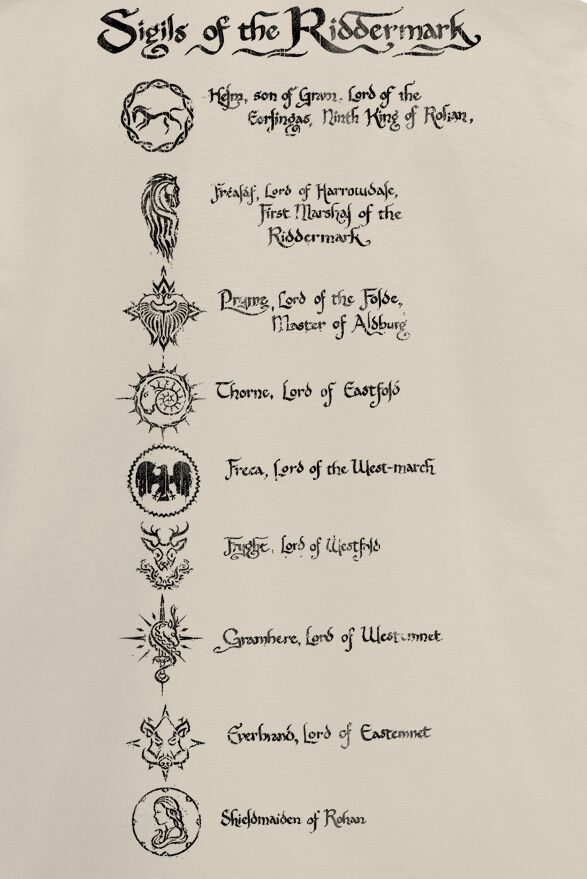 Sigils of the Riddermark
Helm, son of Gram, Lord of the
Eorlingas, Ninth King of Rohan,
Fréaláf, Lord of Harrowdale,
First Marshal of the
Riddermark
Pryme, Lord of the Folde,
Master of Aldburg
Thorne, Lord of Eastfold
Freca, Lord of the West-march
Fryght, Lord of Westfold
Gramhere, Lord of Westemnet
Everbrand, Lord of Eastemnet
Shieldmaiden of Rohan